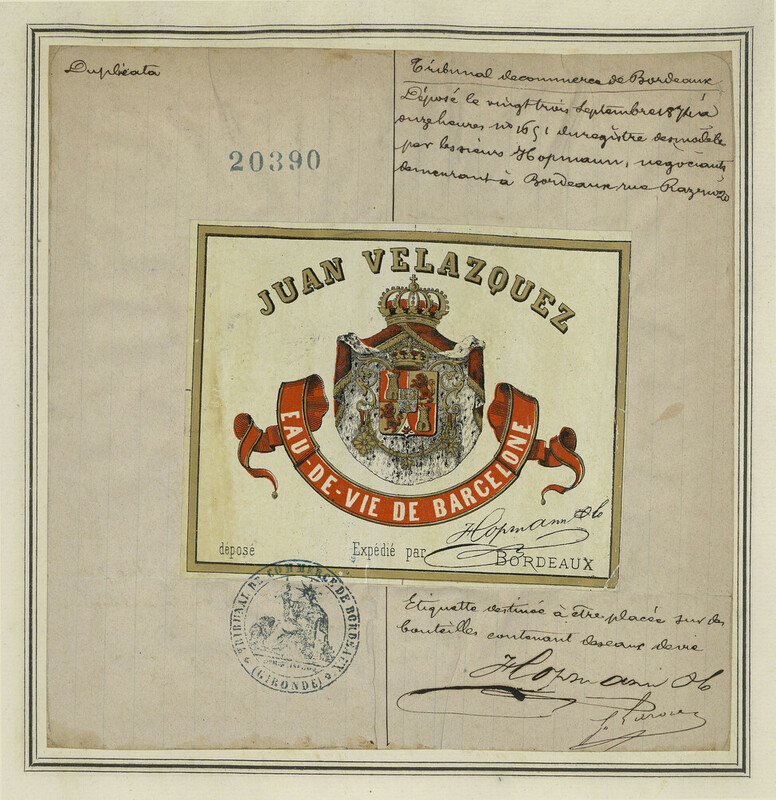 Duplicata
20390
Tribunal de commerce de Bordeaux
Déposé le vingt trois Septembre à
onze heures no 1651 du registre des modèle
par les sieurs Hopmann, négociants
demeurant à Bordeaux rue Raze no 20
JUAN VELAZQUEZ
EAU-DE-VIE DE BARCELONE
Hopmann & Co
déposé Expédié par BORDEAUX
TRIBUNAL DE COMMERCE DE BORDEAUX
(GIRONDE)
Etiquette destinée à être placée sur des
bouteilles contenant des eaux de vie
Hopmann & Co